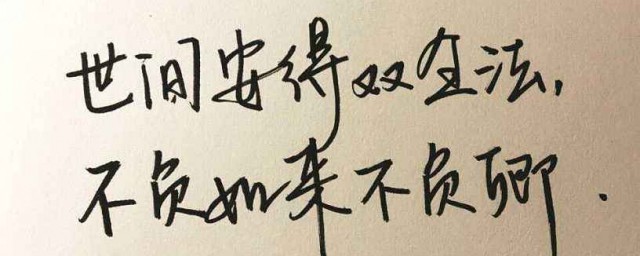 世间安得双全法，
不负如来不负卿．